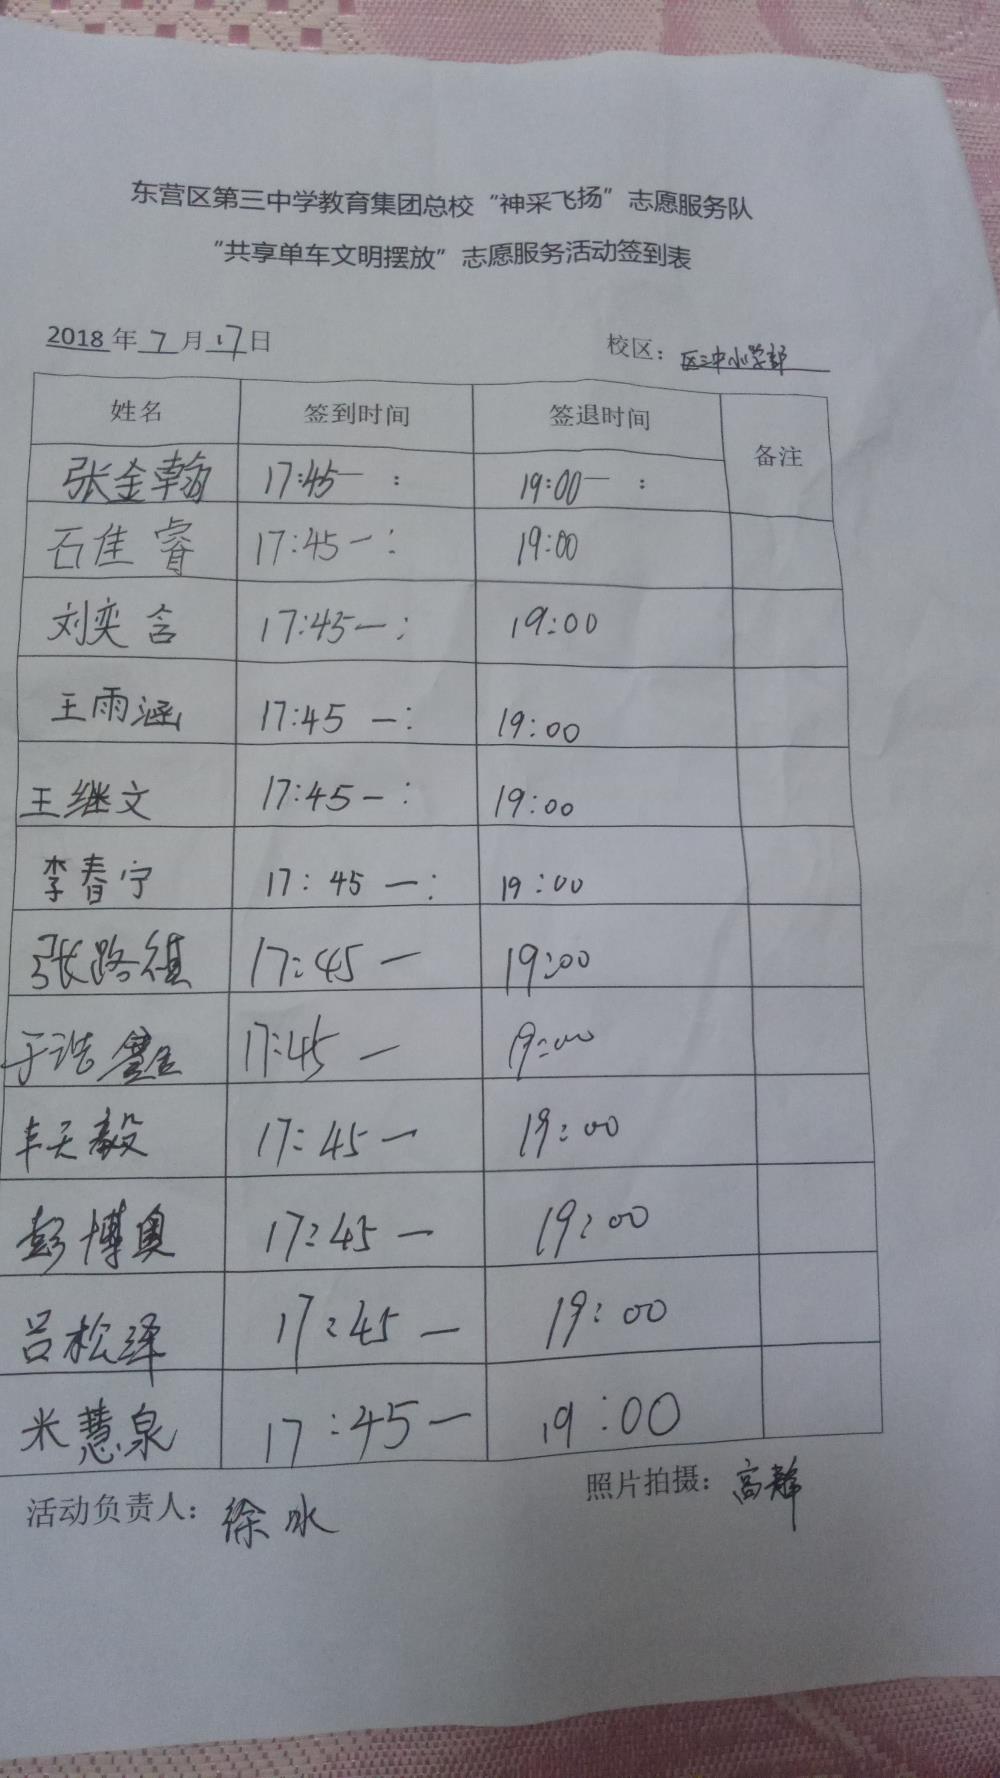 东营区第三中学教育集团总校“神采飞扬”志愿服务队
“共享单车文明摆放”志愿服务活动签到表
2018年7月17日 校区：区三中小学部
姓名 签到时间 签退时间 备注
张金翰 17:45— : 19:00— :
石佳睿 17:45—: 19:00
刘奕含 17:45—: 19:00
王雨涵 17:45—: 19:00
王继文 17:45—: 19:00
李春宁 17:45—: 19:00
张路 17:45— 19:00
于浩鑫 17:45— 19:00
丰天毅 17:45— 19:00
彭博奥 17:45— 19:00
吕松泽 17:45— 19:00
米慧泉 17:45— 19:00
活动负责人：徐冰 照片拍摄：高静